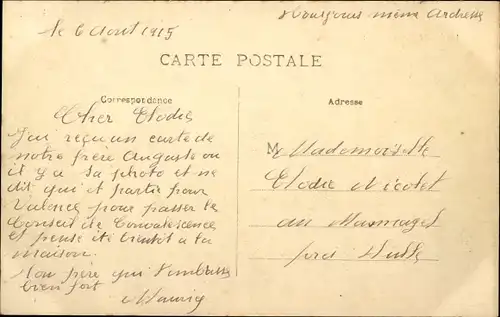 le 6 Aout 1915
Toujours même Adresse
CARTE POSTALE
Correspondance
Adresse
Cher Elodie
J'ai reçu un carte de
notre frère Auguste ou
il y a sa photo et ne
dit qui et partie pour
Valence pour passer le
Conseil de Convalescence
et pense ete bientot a la
maison.
Ton père qui t'embrasse
bien fort
M Mademoiselle
Elodie Nicolet
au
près